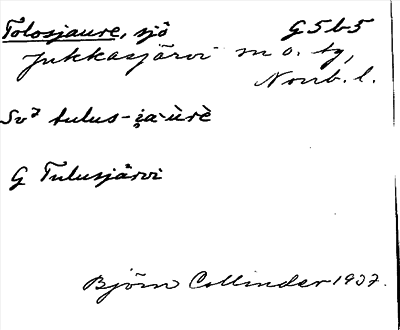 Tolosjaure, sjö G5b5
Jukkasjärvi sn o. tg,
Norrb. l.
Sv? tulus-i̯a·ùrè
G Tulusjärvi
Björn Collinder 1937.